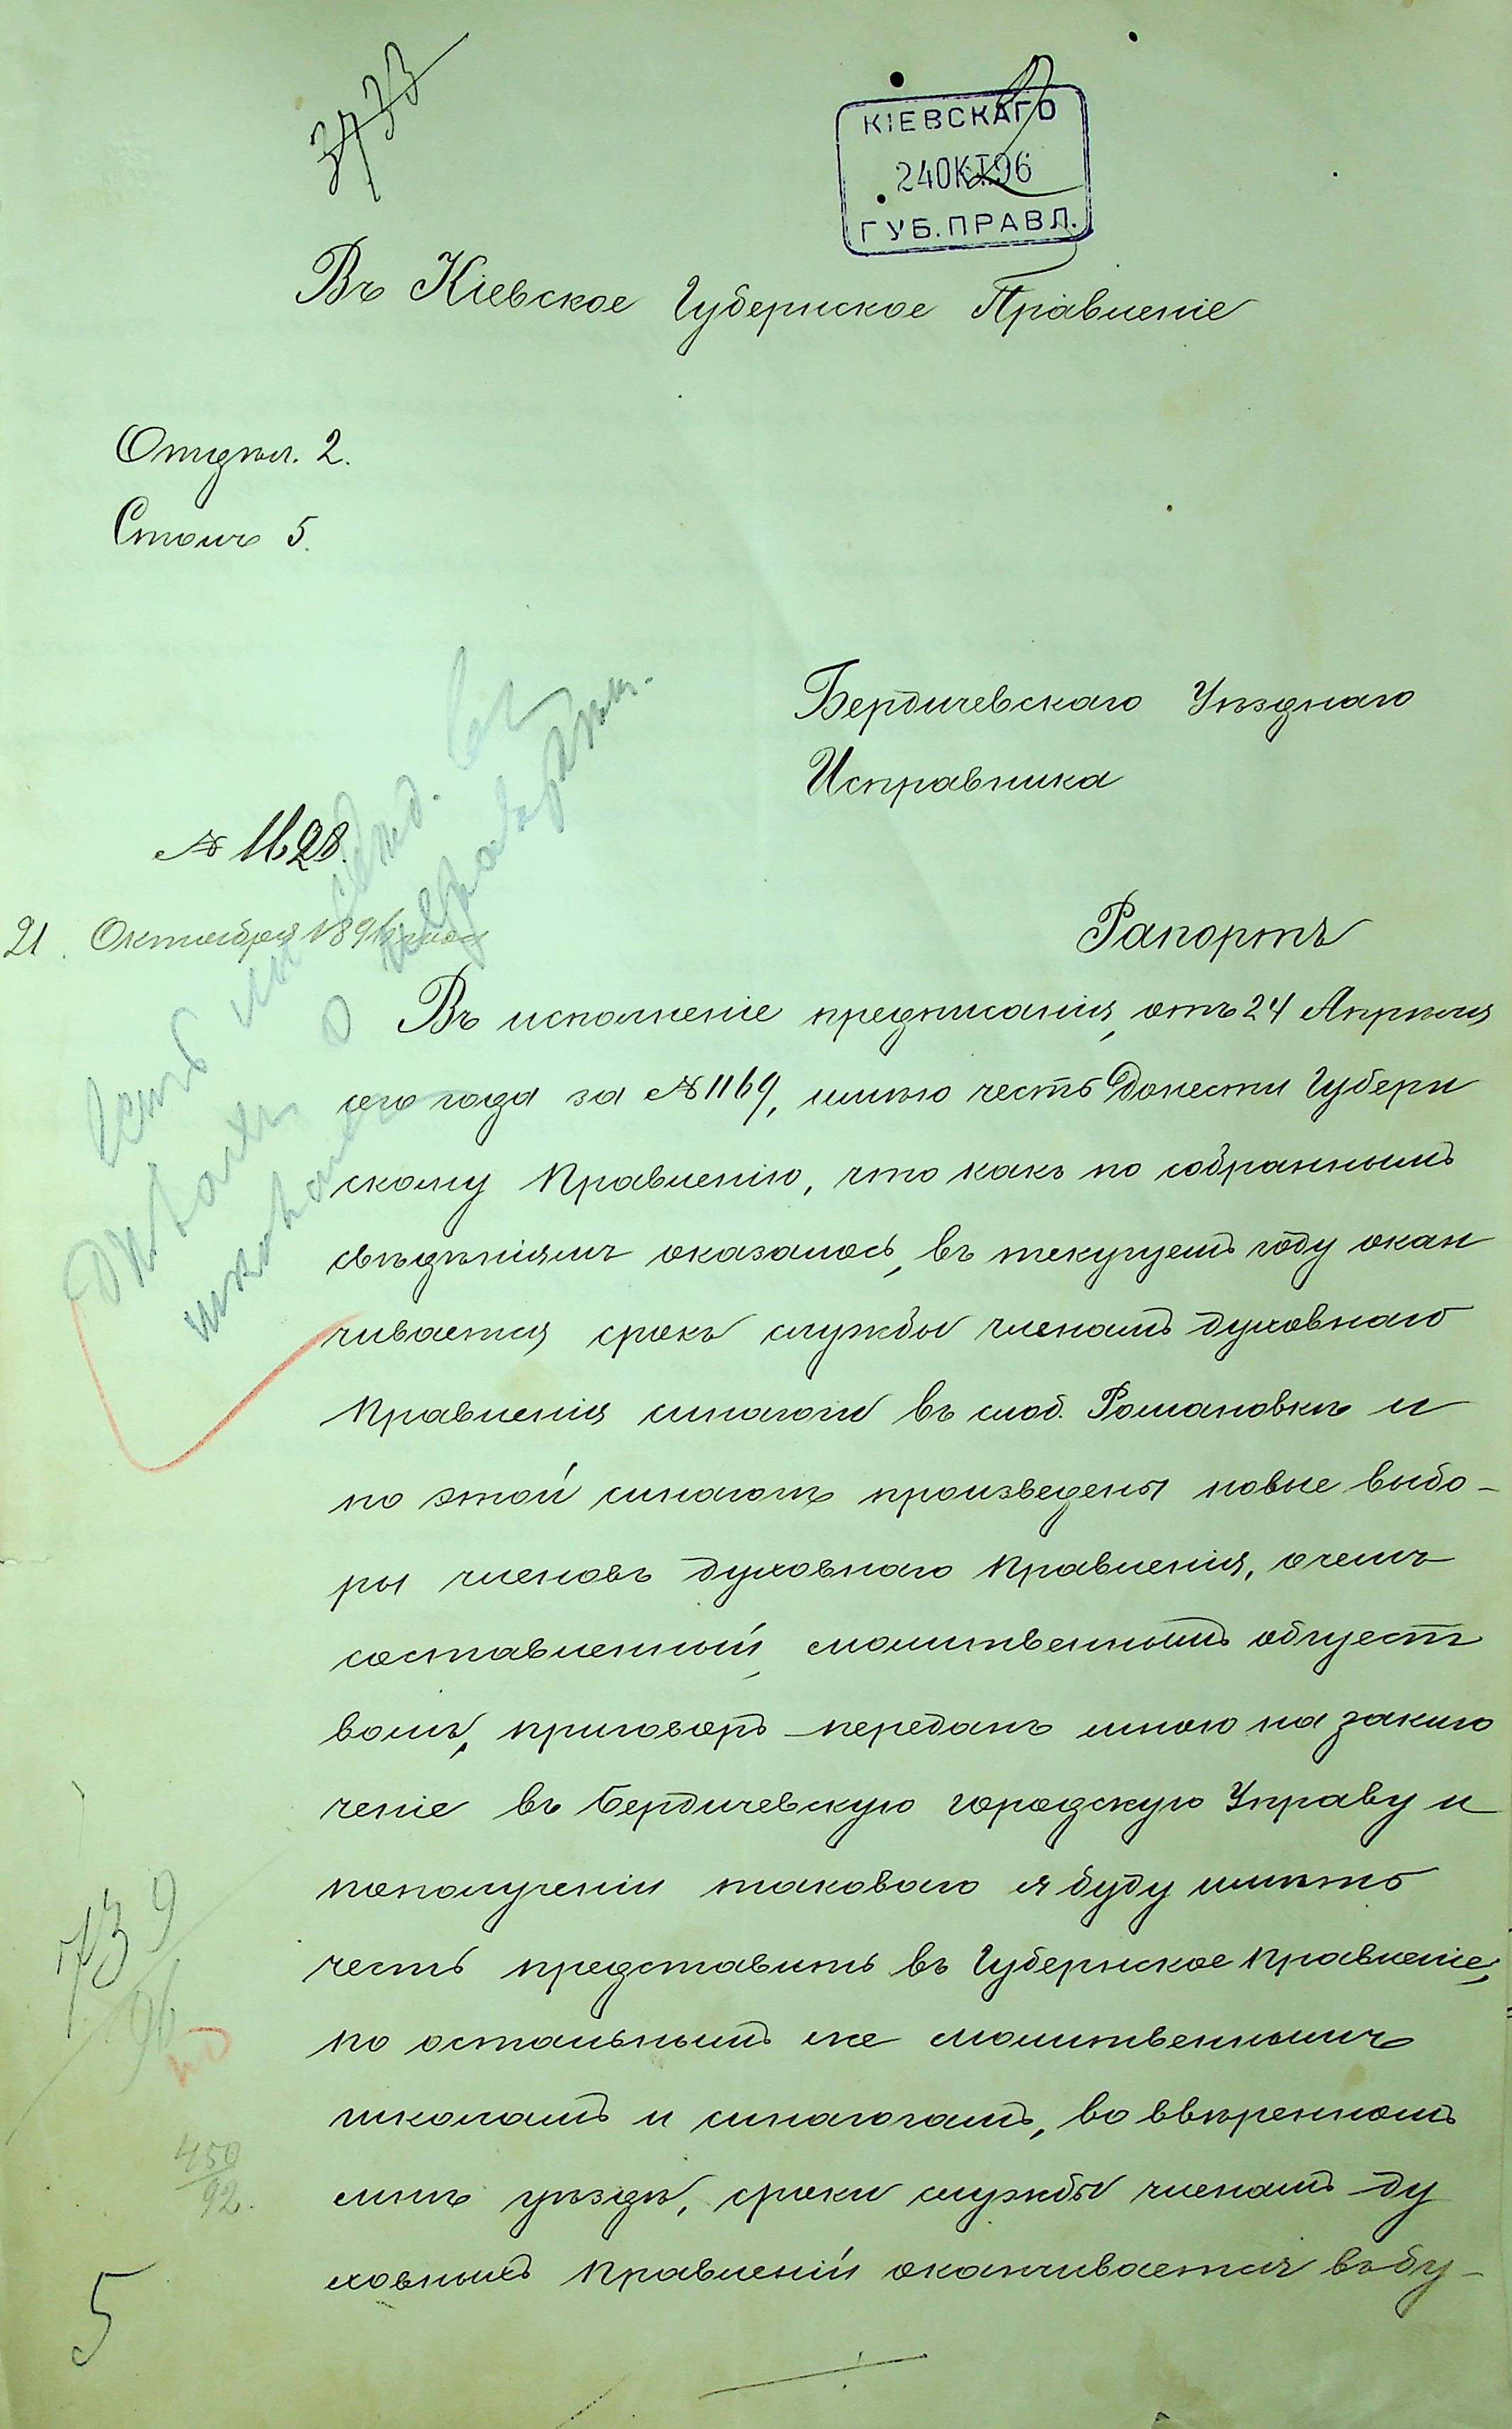 3733
КІЕВСКАГО
24 ОКТ. 96
ГУБ. ПРАВЛ.
Въ Кіевское Губернское Правленіе
Отдѣл. 2.
Столъ 5.
Бердичевскаго Уѣзднаго
Исправника
№ 1628.
21 Октября 1896 года
Рапортъ
Въ исполненіе предписанія, отъ 24 Апрѣля
сего года за № 1169, имѣю честь донести Губерн
скому Правленію, что какъ по собраннымъ
свѣдѣніямъ оказалось, въ текущемъ году окан
чивается срокъ службы членамъ духовнаго
Правленія синагоги въ слоб. Романовкѣ и
по этой синагогѣ произведены новые выбо-
ры членовъ духовнаго Правленія, о чемъ
составленный, молитвеннымъ общест
вомъ, приговоръ передавъ мною на заклю
ченіе въ Бердичевскую городскую Управу и
по полученіи таковаго я буду имѣть
честь представить въ Губернское Правленіе,
по остальнымъ же молитвеннымъ
школамъ и синагогамъ, во ввѣренномъ
мнѣ уѣздѣ, сроки службы членамъ ду
ховныхъ Правленій оканчивается въ бу-
Есть ли свѣд. въ
о
739
96
450
92.
5